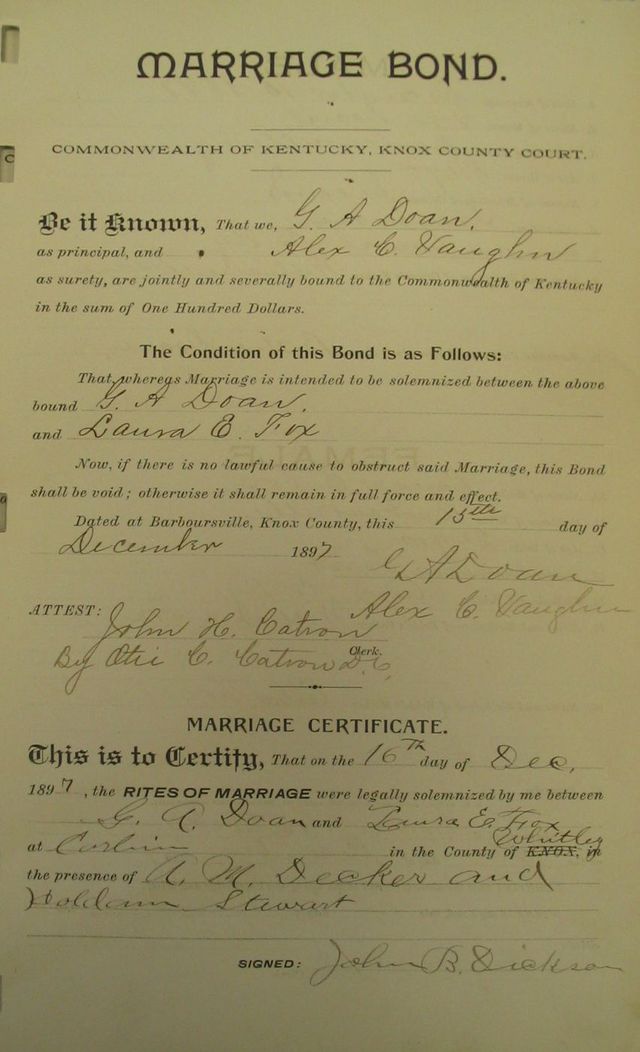 MARRIAGE BOND.
COMMONWEALTH OF KENTUCKY, KNOX COUNTY COURT.
Be it Known, That we, G. A Doan.
as principal, and Alex C. Vaughn
as surety, are jointly and severally bound to the Commonwealth of Kentucky
in the sum of One Hundred Dollars.
The Condition of this Bond is as Follows:
That, whereas Marriage is intended to be solemnized between the above
bound G. A Doan.
and Laura E. Fox
Now, if there is no lawful cause to obstruct said Marriage, this Bond
shall be void; otherwise it shall remain in full force and effect.
Dated at Barboursville, Knox County, this 15th day of
December 1897
G A Doan
ATTEST: Alex C. Vaughn
John H. Catron
Clerk.
By Otie C. Catron D.C.
MARRIAGE CERTIFICATE.
This is to Certify, That on the 16th day of Dec.
1897, the RITES OF MARRIAGE were legally solemnized by me between
G. A. Doan and Laura E Fox
at Corbin in the County of KNOX, Whitley in
the presence of A. M. Decker and
Stewart
SIGNED: John B. Dickson